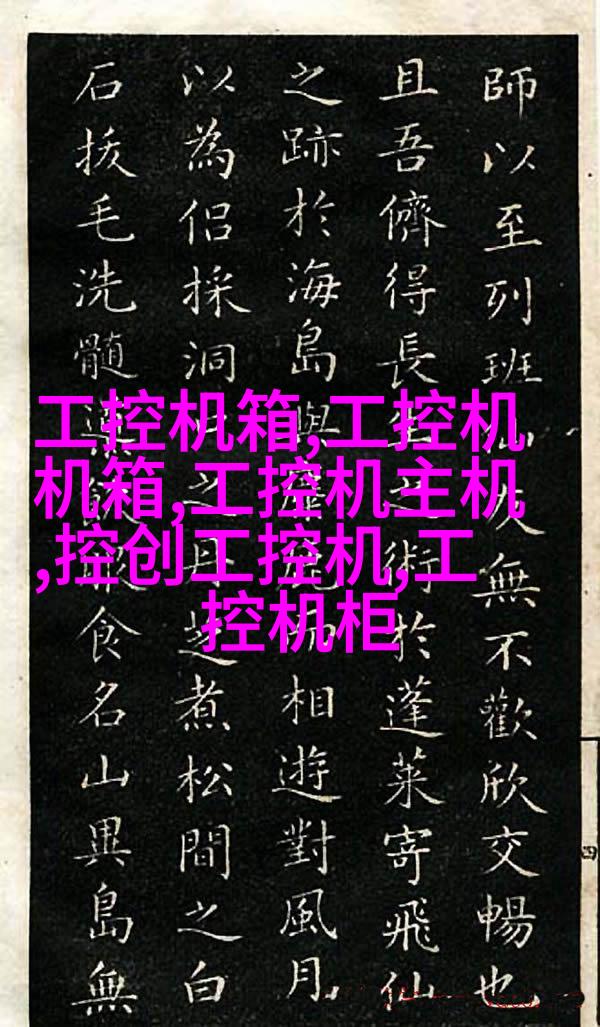 師以至列班仙友無不歡欣交暢也
且吾儕得長生之術於蓬萊寄飛仙
之跡於海島與相遊對風月
以為侶採洞之丹芝煮松間之白
石拔毛洗髓食名山異島無
工控机箱,工控机
机箱,工控机主机
,控创工控机,工
控机柜
四